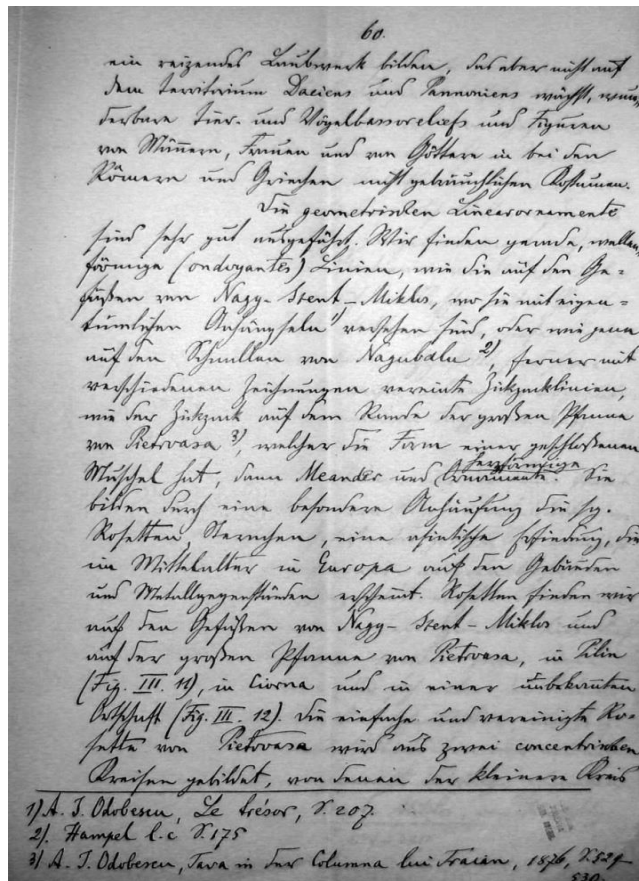 60.
ein reizendes Laubwerk bilden, das aber nicht auf
dem Territorium Daciens und Pannoniens wächst, wun-
derbare Tier- und Vögelbassoreliefs und Figuren
von Männern, Frauen und von Göttern in bei den
Römern und Griechen nicht gebräuchlichen Kostumen.
Die geometrischen Linearornamente
sind sehr gut ausgeführt. Wir finden gerade, wellen-
förmige (ondoyantes) Linien, wie die auf den Ge-
fäßen von Nagy-Szent-Miklos, wo sie mit eigen-
tümlichen Anhängseln 1) versehen sind, oder wie jene
auf den Schnallen von 2), ferner mit
verschiedenen Zeichnungen vereinte Zickzacklinien,
wie der Zickzack auf dem Rande der großen Pfanne
von Pietroasa 3), welcher die Form einer geschlossenen
Muschel hat, dann Meander und herzförmige Ornamente. Sie
bilden durch eine besondere Anhäufung die sg.
Rosetten, Sternchen, eine asiatische Erfindung, die
im Mittelalter in Europa auf den Gebäuden
und Metallgegenständen erscheint. Rosetten finden wir
auf den Gefäßen von Nagy-Szent-Miklos und
auf der großen Pfanne von Pietroasa, in Pilin
(Fig. III. 11), in Ciorna und in einer unbekannten
Ortschaft (Fig. III. 12). Die einfache und vereinigte Ro-
sette von Pietroasa wird aus zwei concentrischen
Kreisen gebildet, von denen der kleinere Kreis
1) A. I. Odobescu, Le trésor, S. 207.
2). Hampel l.c S. 175
3) A. I. Odobescu, in der Columna lui Traian, 1876, S. 529-
530.